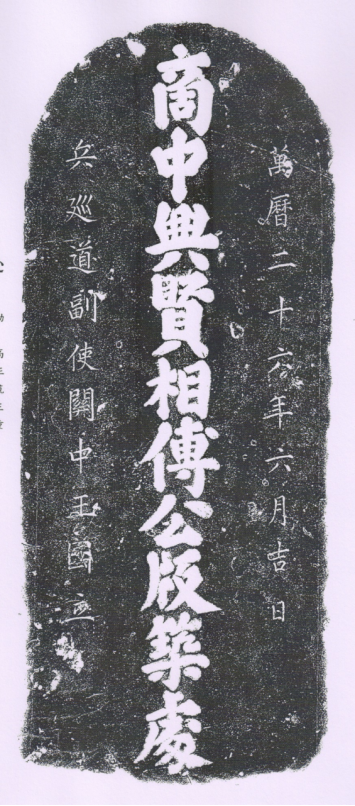 萬曆二十六年六月吉日
商中興賢相傅公版築處
兵巡道副使關中王國立